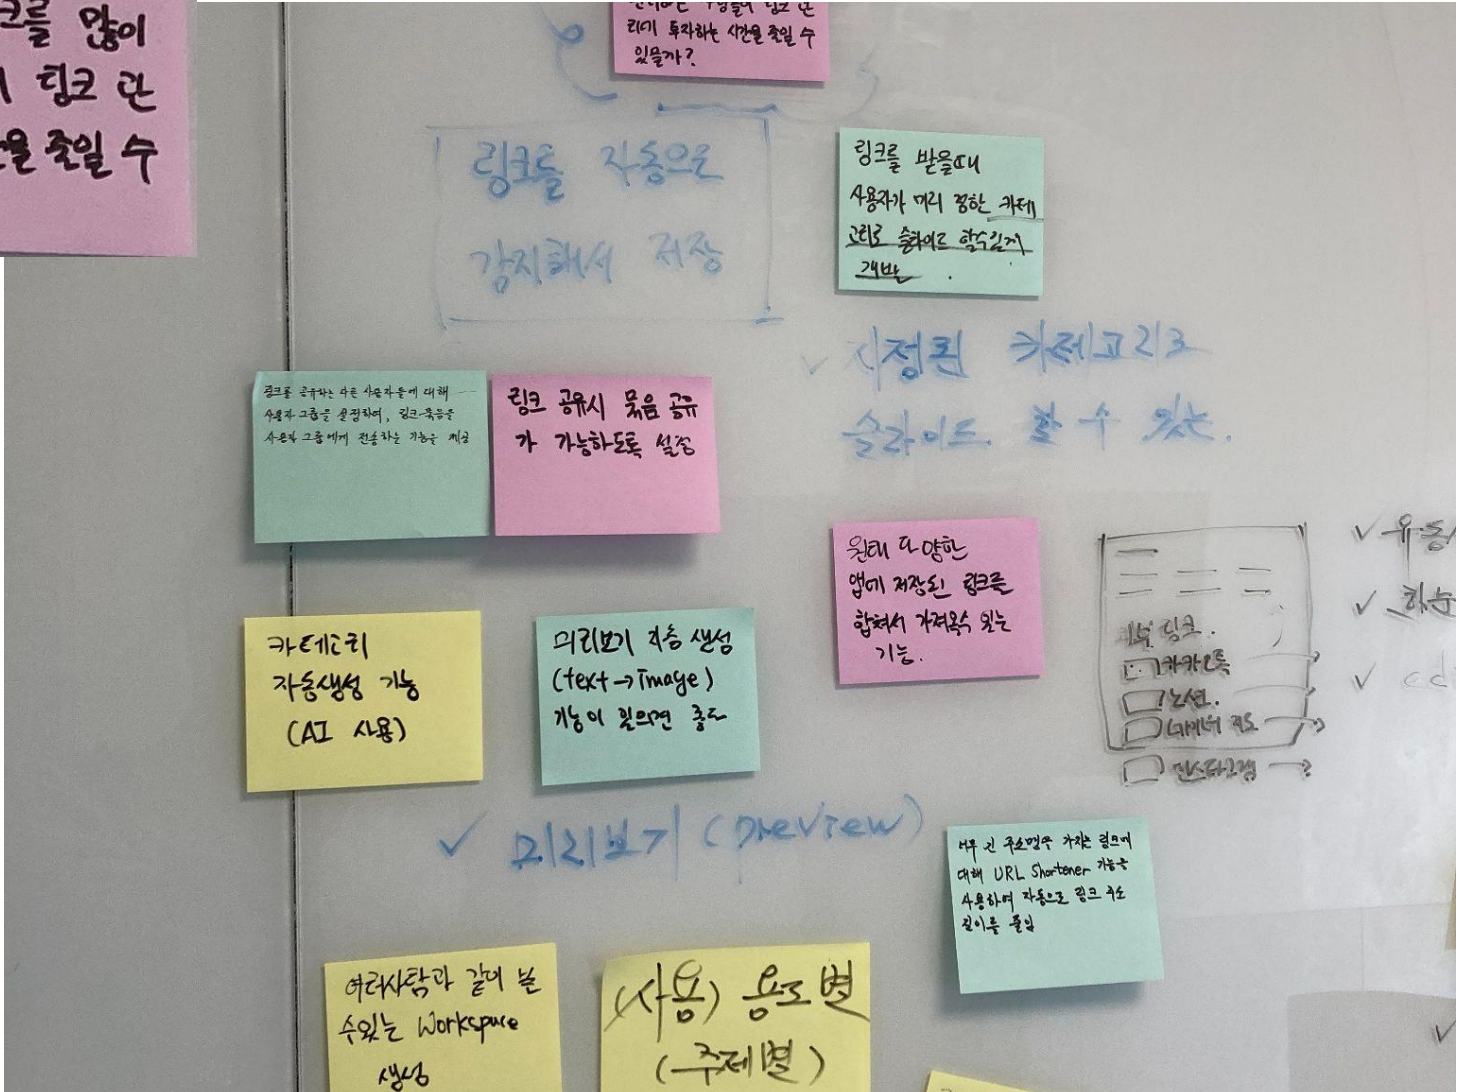 크를 많이
링크 관
줄일 수
링크 관
리에 투자하는 시간을 줄일 수
있을까?
링크를 자동으로
감지해서 저장
링크를 받을때
사용자가 미리 정한 카테
고리로 슬라이드 할수있게
개발.
지정된 카테고리로
슬라이드 할 수 있는.
링크를 공유하는 다른 사용자들에 대해
사용자 그룹을 설정하여, 링크 묶음을
사용자 그룹에게 전송하는 기능을 제공
링크 공유시 묶음 공유
가 가능하도록 설정
원래 다양한
앱에 저장된 링크를
합쳐서 가져올수 있는
기능.
카테고리
자동생성 기능
(AI 사용)
미리보기 자동 생성
(text→image)
기능이 있으면 좋다
링크.
카카오톡
노션.
네이버 지도
인스타그램
✓ 미리보기 (preview)
너무 긴 주소명을 가지는 링크에
대해 URL Shortener 기능을
사용하여 자동으로 링크 주소
길이를 줄임
여러사람과 같이 볼
수있는 Workspace
생성
(사용) 용도별
(주제별)